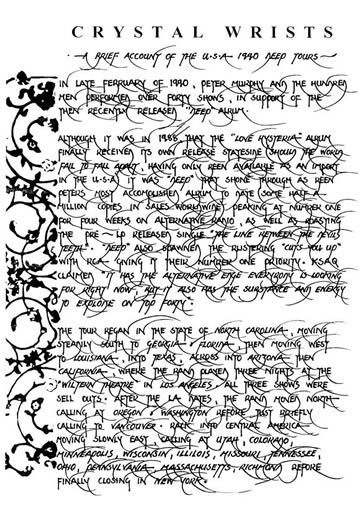 CRYSTAL WRISTS
A BRIEF ACCOUNT OF THE U.S.A 1990 DEEP TOURS
IN LATE FEBRUARY OF 1990, PETER MURPHY AND THE HUNDRED
MEN PERFORMED OVER FORTY SHOWS, IN SUPPORT OF THE
THEN RECENTLY RELEASED "DEEP" ALBUM.
ALTHOUGH IT WAS IN 1988 THAT THE "LOVE HYSTERIA" ALBUM
FINALLY RECEIVED ITS OWN RELEASE STATESIDE (SHOULD THE WORLD
FAIL TO FALL APART HAVING ONLY BEEN AVAILABLE AS AN IMPORT
IN THE U.S.A) IT WAS "DEEP" THAT SHONE THROUGH AS BEEN
PETERS MOST ACCOMPLISHED ALBUM TO DATE (SOME HALF A
MILLION COPIES IN SALES WORLDWIDE) PEAKING AT NUMBER ONE
FOR FOUR WEEKS ON ALTERNATIVE RADIO, AS WELL AS BOASTING
THE PRE-LP RELEASED SINGLE "THE LINE BETWEEN THE DEVILS
TEETH". "DEEP" ALSO SPAWNED THE BLISTERING "CUTS YOU UP"
WITH RCA GIVING IT THEIR NUMBER ONE PRIORITY. KSAR
CLAIMED "IT HAS THE ALTERNATIVE EDGE EVERYBODY IS LOOKING
FOR RIGHT NOW, BUT IT ALSO HAS THE SUBSTANCE AND ENERGY
TO EXPLODE ON TOP FORTY".
THE TOUR BEGAN IN THE STATE OF NORTH CAROLINA, MOVING
STEADILY SOUTH TO GEORGIA, FLORIDA, THEN MOVING WEST
TO LOUISIANA, INTO TEXAS, ACROSS INTO ARIZONA THEN
CALIFORNIA, WHERE THE BAND PLAYED THREE NIGHTS AT THE
"WILTERN THEATRE" IN LOS ANGELES. ALL THREE SHOWS WERE
SELL OUTS. AFTER THE LA DATES THE BAND MOVED NORTH
CALLING AT OREGON & WASHINGTON BEFORE JUST BRIEFLY
CALLING TO VANCOUVER. BACK INTO CENTRAL AMERICA
MOVING SLOWLY EAST, CALLING AT UTAH, COLORADO,
MINNEAPOLIS, WISCONSIN, ILLILOIS, MISSOURI, TENNESSEE,
OHIO, PENNSYLVANIA, MASSACHUSETTS, RICHMOND BEFORE
FINALLY CLOSING IN NEW YORK.